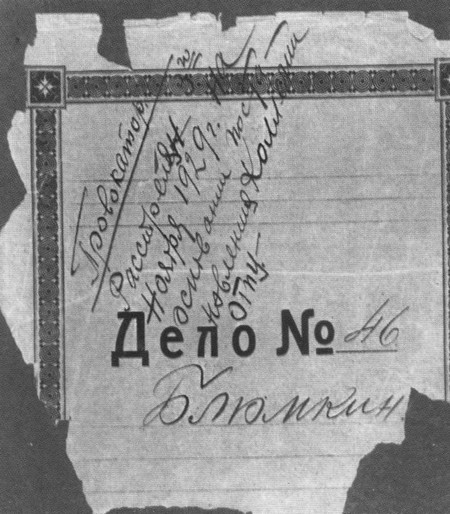 Провокатор
Расстрелян 3го
Ноября 1929г. на
основании поста-
новления Коллегии
ОГПУ
Дело № 46
Блюмкин